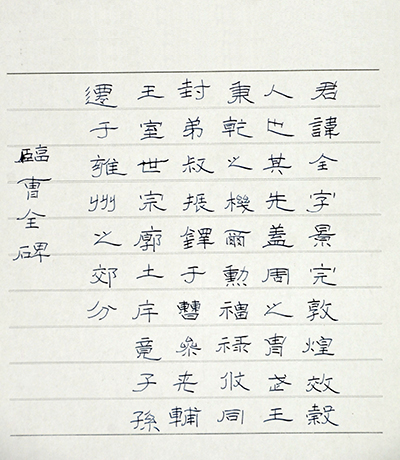 君諱全字景完敦煌效穀
人也其先蓋周之胄武王
秉乾之機爾勳福祿攸同
封弟叔振鐸于曹參夾輔
王室世宗廓土斥竟子孫
遷于雍州之郊分
臨曹全碑